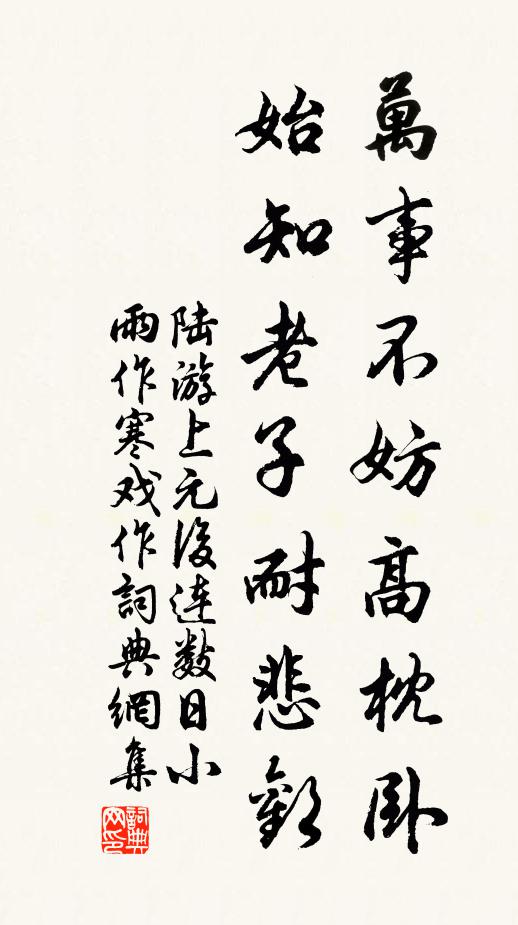 萬事不妨高枕卧
始知老子耐悲歡
陆游上元後连数日小
雨作寒戏作詞典網集
詞典网印